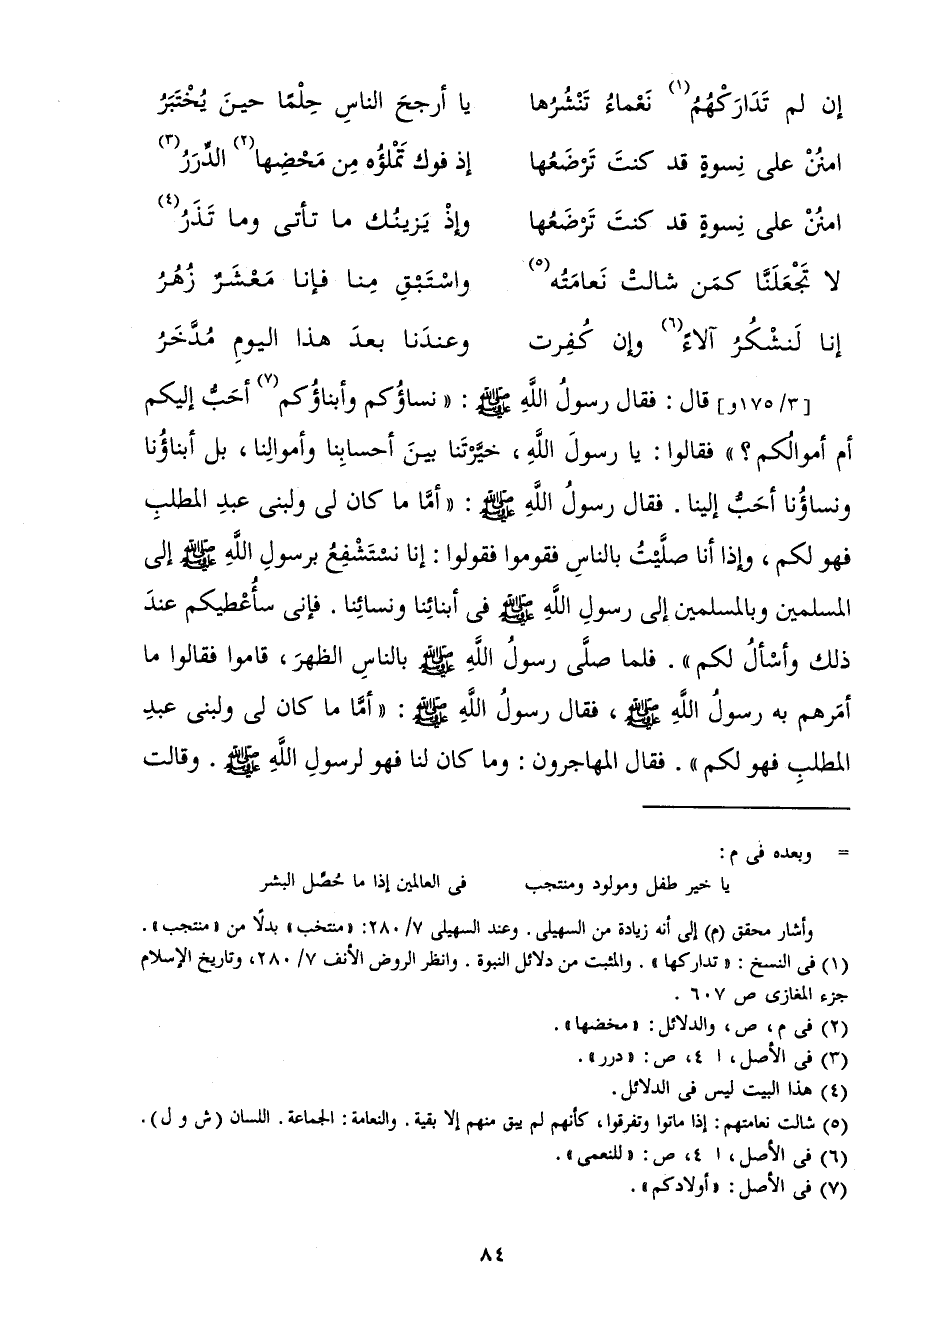 إن لم تَدَارَكْهُمُ(١) نَعْماءُ تَنْشُرُها يا أرجحَ الناسِ حِلْمًا حينَ يُخْتَبَرُ
امنُنْ على نِسوةٍ قد كنتَ تَرْضَعُها إذ فوك تَمْلَؤُه مِن مَحْضِها(٢) الدِّرَرُ(٣)
امنُنْ على نِسوةٍ قد كنتَ تَرْضَعُها وإذْ يَزينُك ما تأتى وما تَذَرُ(٤)
لا تَجْعَلَنَّا كمَن شالتْ نَعامَتُه(٥) واسْتَبْقِ مِنا فإنا مَعْشَرٌ زُهُرُ
إنا لَنشْكُرُ آلاءً(٦) وإن كُفِرت وعندَنا بعدَ هذا اليومِ مُدَّخَرُ
[٣/ ١٧٥و] قال : فقال رسولُ اللَّهِ ﷺ : « نساؤُكم وأبناؤُكم(٧) أحَبُّ إليكم
أم أموالُكم ؟ » فقالوا : يا رسولَ اللَّهِ ، خيَّرْتَنا بينَ أحسابِنا وأموالِنا ، بل أبناؤُنا
ونساؤُنا أحَبُّ إلينا . فقال رسولُ اللَّهِ ﷺ : « أمَّا ما كان لى ولبنى عبدِ المطلبِ
فهو لكم ، وإذا أنا صلَّيْتُ بالناسِ فقوموا فقولوا : إنا نسْتَشْفِعُ برسولِ اللَّهِ ﷺ إلى
المسلمين وبالمسلمين إلى رسولِ اللَّهِ ﷺ فى أبنائِنا ونسائِنا . فإنى سأُعْطيكم عندَ
ذلك وأسْألُ لكم » . فلما صلَّى رسولُ اللَّهِ ﷺ بالناسِ الظهرَ ، قاموا فقالوا ما
أمَرهم به رسولُ اللَّهِ ﷺ ، فقال رسولُ اللَّهِ ﷺ : « أمَّا ما كان لى ولبنى عبدِ
المطلبِ فهو لكم » . فقال المهاجرون : وما كان لنا فهو لرسولِ اللَّهِ ﷺ . وقالت
= وبعده فى م :
يا خير طفل ومولود ومنتجب فى العالمين إذا ما حُصِّل البشر
وأشار محقق (م) إلى أنه زيادة من السهيلى . وعند السهيلى ٢٨٠/٧ : « منتخب » بدلًا من « منتجب » .
(١) فى النسخ : « تداركها » . والمثبت من دلائل النبوة . وانظر الروض الأنف ٢٨٠/٧ ، وتاريخ الإسلام
جزء المغازى ص ٦٠٧ .
(٢) فى م ، ص ، والدلائل : « مخضها » .
(٣) فى الأصل ، ا ٤ ، ص : « درر » .
(٤) هذا البيت ليس فى الدلائل .
(٥) شالت نعامتهم : إذا ماتوا وتفرقوا ، كأنهم لم يبق منهم إلا بقية . والنعامة : الجماعة . اللسان (ش و ل) .
(٦) فى الأصل ، ا ٤ ، ص : « للنعمى » .
(٧) فى الأصل : « أولادكم » .
٨٤